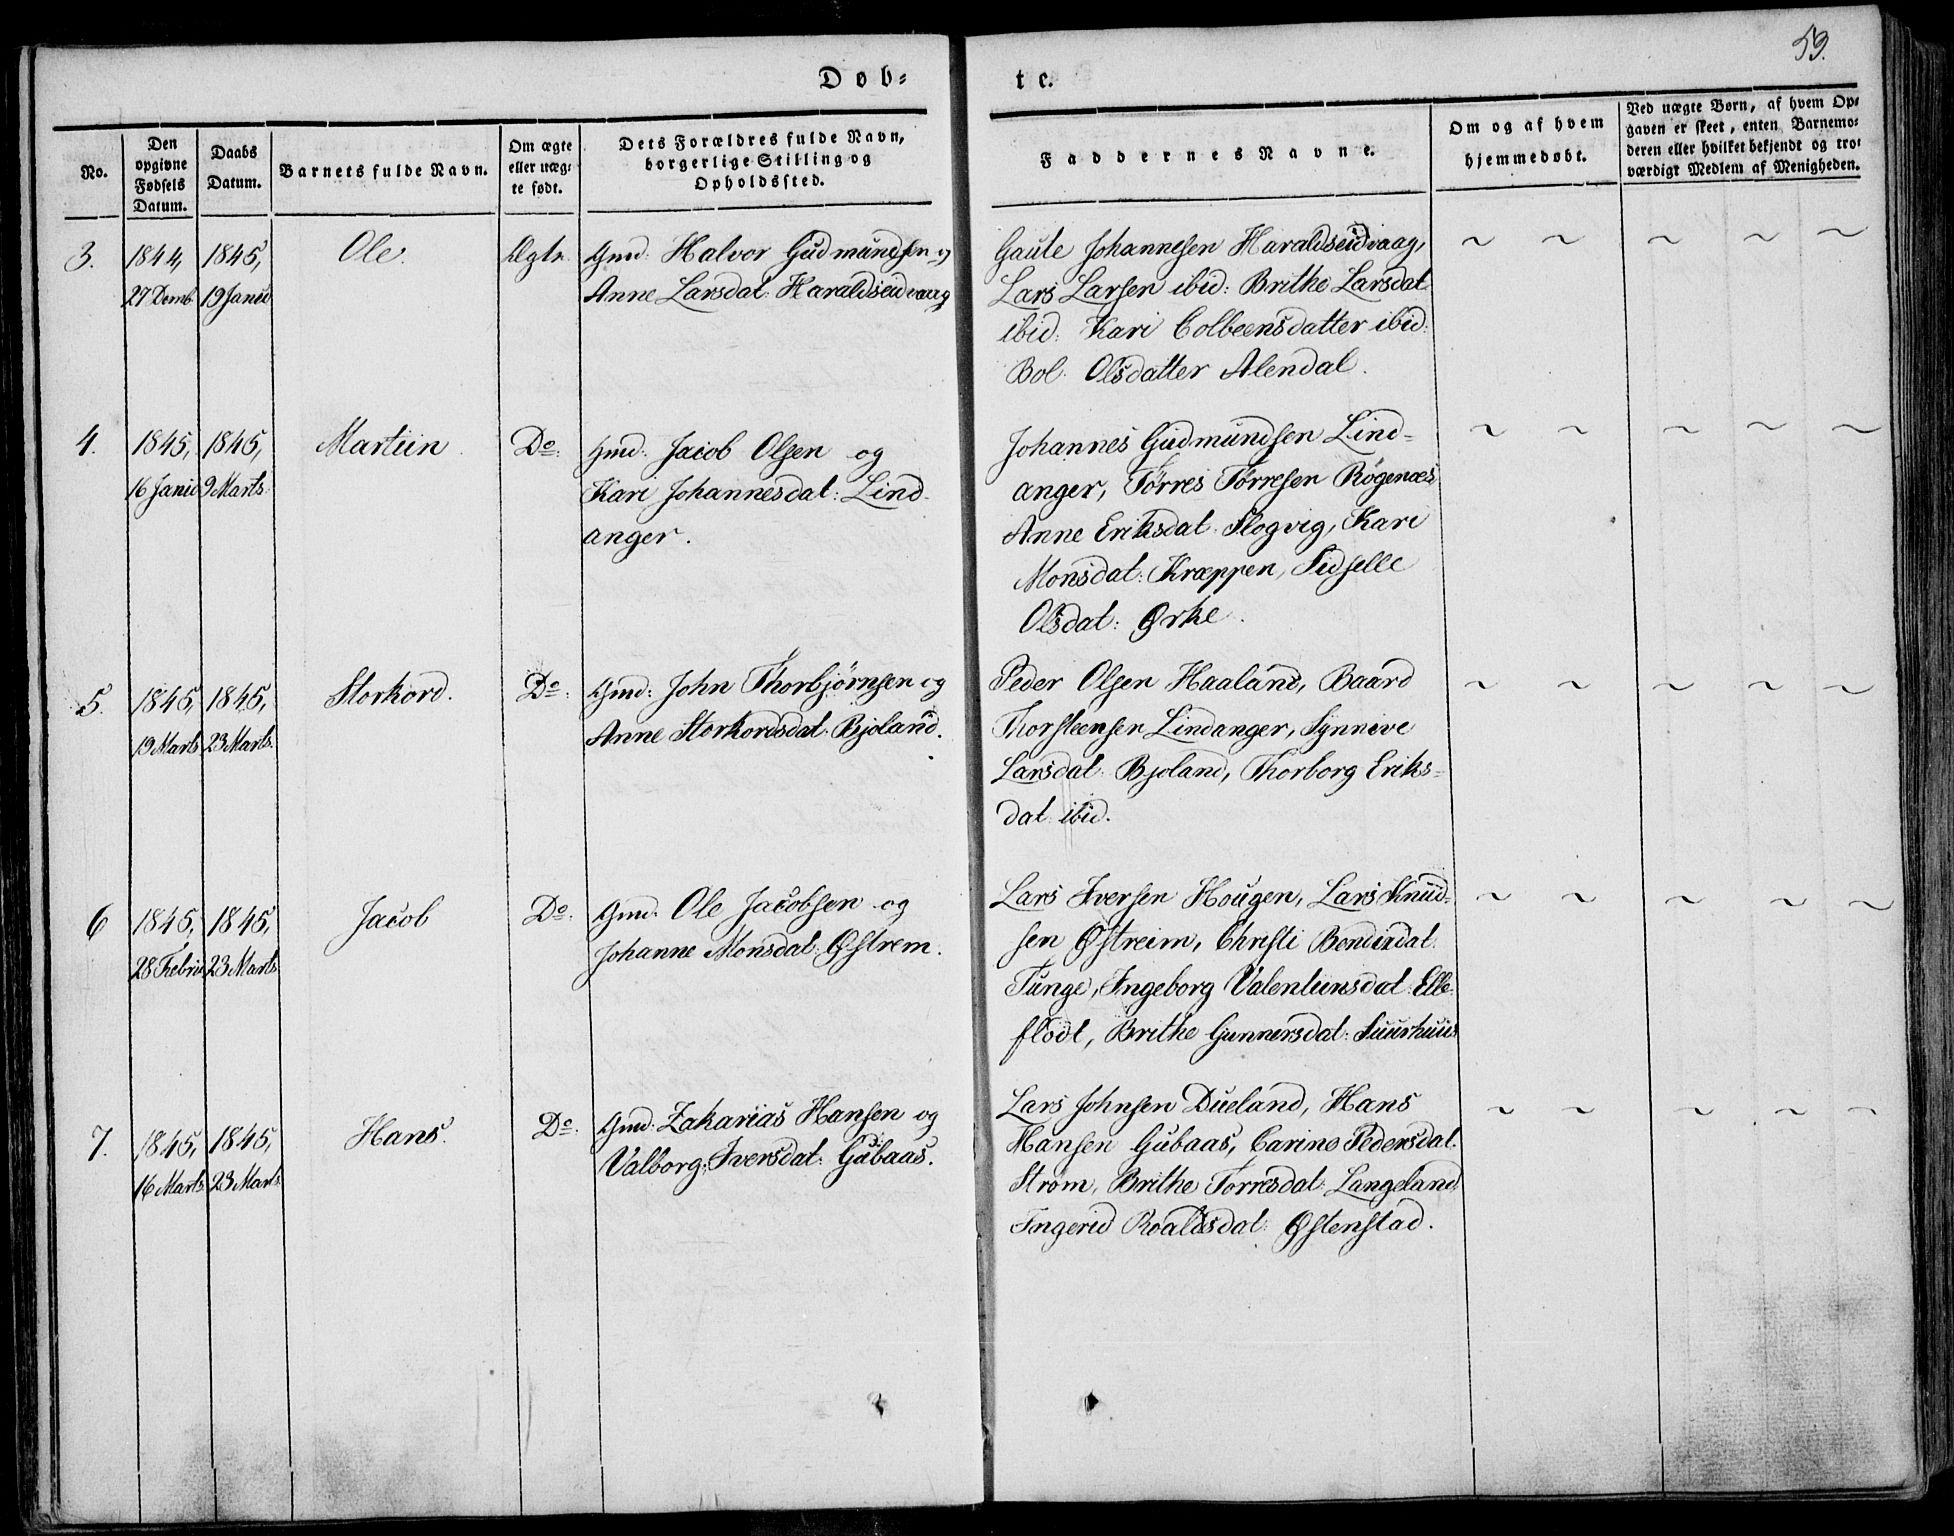 59.
Døb-
te.
No.
Den opgivne Fødsels Datum.
Daabs Datum.
Barnets fulde Navn.
Om ægte eller uægte født.
Dets Forældres fulde Navn, borgerlige Stilling og Opholdssted.
Faddernes Navne.
Om og af hvem hjemmedøbt.
Ved uægte Børn, af hvem Opgaven er skeet, enten Barnemoderen eller hvilket bekjendt og troværdigt Medlem af Menigheden.
3.
1844, 27 Demb
1845, 19 Janu
Ole.
Ægte
Gmd: Halvor Gudmundsen og
Anne Larsdat: Haraldseidvaag
Gaute Johannesen Haraldseidvaag,
Lars Larsen ibid: Brithe Larsdat
ibid: Kari Colbeensdatter ibid:
Bol. Olsdatter Alendal.
~ ~ ~ ~ ~
4.
1845, 16 Janu
1845, 9 Marts
Martiin
Do:
Gmd: Jacob Olsen og
Kari Johannesdat: Lind-
anger.
Johannes Gudmundsen Lind-
anger, Tørres Tørresen Røgenæs,
Anne Eriksdat. Slogvig, Kari
Monsdat: Kræppen, Sidselle
Olsdat: Ørke.
~ ~ ~ ~ ~
5.
1845, 19 Marts
1845, 23 Marts.
Storkord.
Do:
Gmd: John Thorbjørnsen og
Anne Storkordsdat. Bjoland.
Peder Olsen Haaland, Baard
Thorsteensen Lindanger, Synneve
Larsdat: Bjoland, Thorborg Eriks-
dat: ibid.
~ ~ ~ ~ ~
6
1845, 28 Febru
1845, 23 Marts
Jacob
Do.
Gmd: Ole Jacobsen og
Johanne Monsdat: Østrem.
Lars Iversen Hougen, Lars Knud-
sen Østreim, Christi Bendixdat:
Tunge, Ingeborg Valentinsdat: Elle-
flodt, Brithe Gunnersdat: Suurhuus
~ ~ ~ ~ ~
7.
1845, 16 Marts
1845, 23 Marts
Hans.
Do:
Gmd: Zakarias Hansen og
Valborg Iversdat: Gubaas.
Lars Johnsen Dueland, Hans
Hansen Gubaas, Carine Pedersdat.
Strøm, Brithe Torresdat: Langeland,
Ingerid Roaldsdat: Østenstad.
~ ~ ~ ~ ~